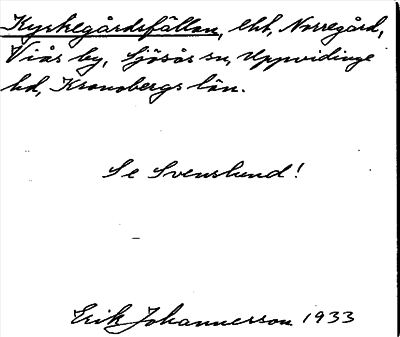 Kyrkegårdsfällan, ekt, Norregård,
Viås by, Sjösås sn, Uppvidinge
hd, Kronobergs län.
Se Svenslund!
Erik Johannesson 1933